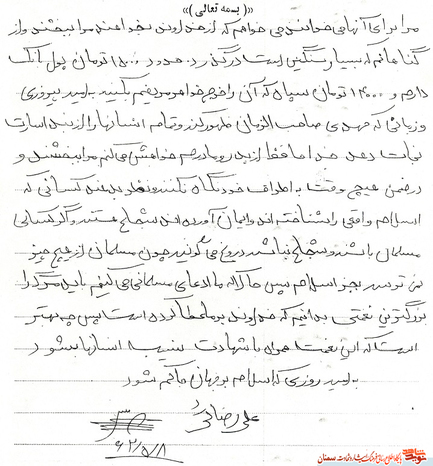 «(بسمه تعالی)»
مرا برای آنهایی خوانند می خواهم که از خداوند بخواهند مرا ببخشد و از
گناهانم که بسیار سنگین است درگذرد. حدود ۱۵۰۰ تومان پول بانک
دارم و ۱۴۰۰۰ تومان سپاه که آن را خرج خواهر مریضم بکنید به امید پیروزی
و زمانی که مهدی صاحب الزمان ظهور کند و تمام انسانها را از بند اسارت
نجات دهد خدا حافظ از پدر و مادرم خواهش می کنم مرا ببخشند و
در ضمن هیچ وقت به اطراف خود نگاه نکنند و نفرین کسانی که
اسلام واقعی را شناخته اند و ایمان آورده اند شجاع هستند و اگر کسانی
مسلمان باشند و شجاع نباشند دروغ می گویند چون مسلمان از هیچ چیز
نمی ترسد بجز اسلام پس حالا که ما ادعای مسلمانی می کنیم باید مرگ را
بزرگترین نعمتی بدانیم که خداوند بر ما عطا کرده است پس چه بهتر
است که این نعمت همراه با شهادت نصیب انسانها بشود
به امید روزی که اسلام بر جهان حاکم شود
علی رضا
۶۲/۵/۸